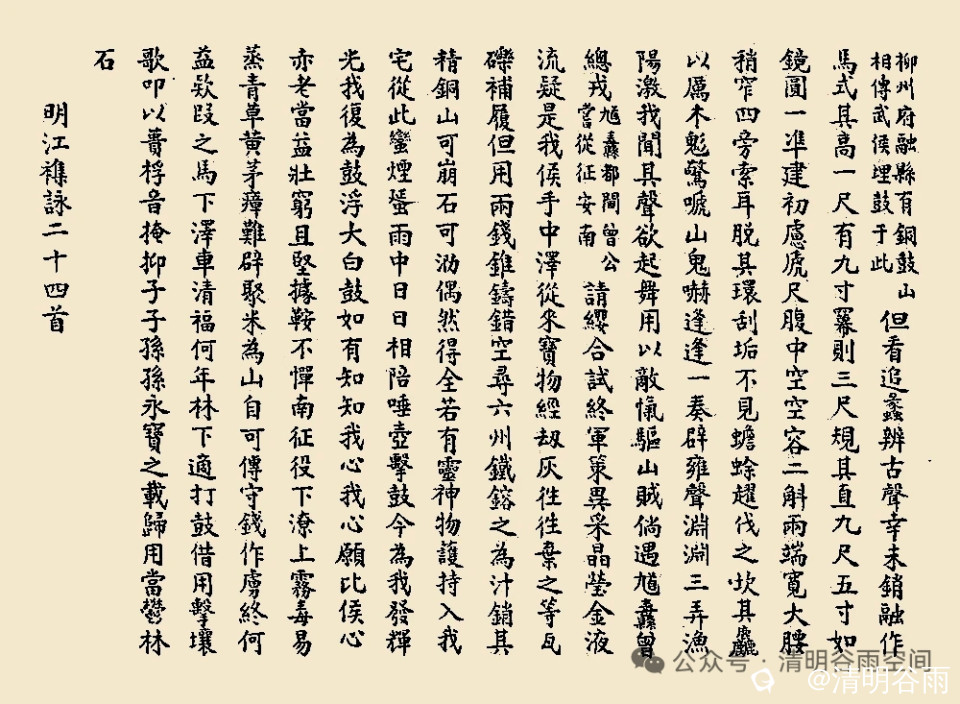 柳州府融縣有銅鼓山
相傳武侯埋鼓于此
但看追蠡辨古聲幸未銷融作
馬式其高一尺有九寸羃則三尺規其直九尺五寸如
鏡圓一準建初慮虒尺腹中空空容二斛兩端寬大腰
稍窄四旁索耳脫其環刮垢不見蟾蜍趯伐之坎其
以厲木鬽驚號山鬼嚇逢逢一奏辟雍聲淵淵三弄漁
陽激我聞其聲欲起舞用以敵愾驅山賊倘遇馗纛曾
總戎
馗纛都閫曾公
嘗從征安南
請纓合試終軍策異采晶瑩金液
流疑是我侯手中澤從來寶物經劫灰往往棄之等瓦
礫補履但用兩錢錐鑄錯空尋六州鐵鎔之為汁銷其
精銅山可崩石可泐偶然得全若有靈神物護持入我
宅從此蠻煙蜑雨中日日相陪唾壺擊鼓今為我發輝
光我復為鼓浮大白鼓如有知知我心我心願比侯心
亦老當益壯窮且堅據鞍不憚南征役下潦上霧毒易
蒸青草黃茅瘴難辟聚米為山自可傳守錢作虜終何
益欵段之馬下澤車清福何年林下適打鼓借用擊壤
歌叩以蕢桴音掩抑子子孫孫永寶之載歸用當鬱林
石
明江襍詠二十四首
公众号·清明谷雨空间
@清明谷雨